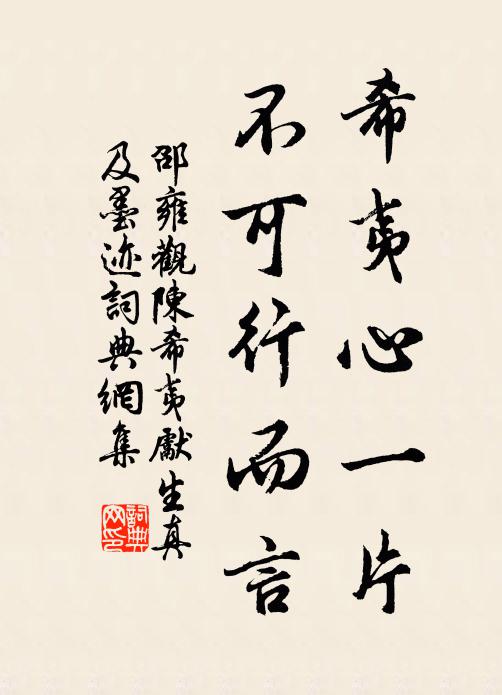 希夷心一片
不可行而言
邵雍觀陳希夷獻生真
及墨迹詞典網集
詞典网印